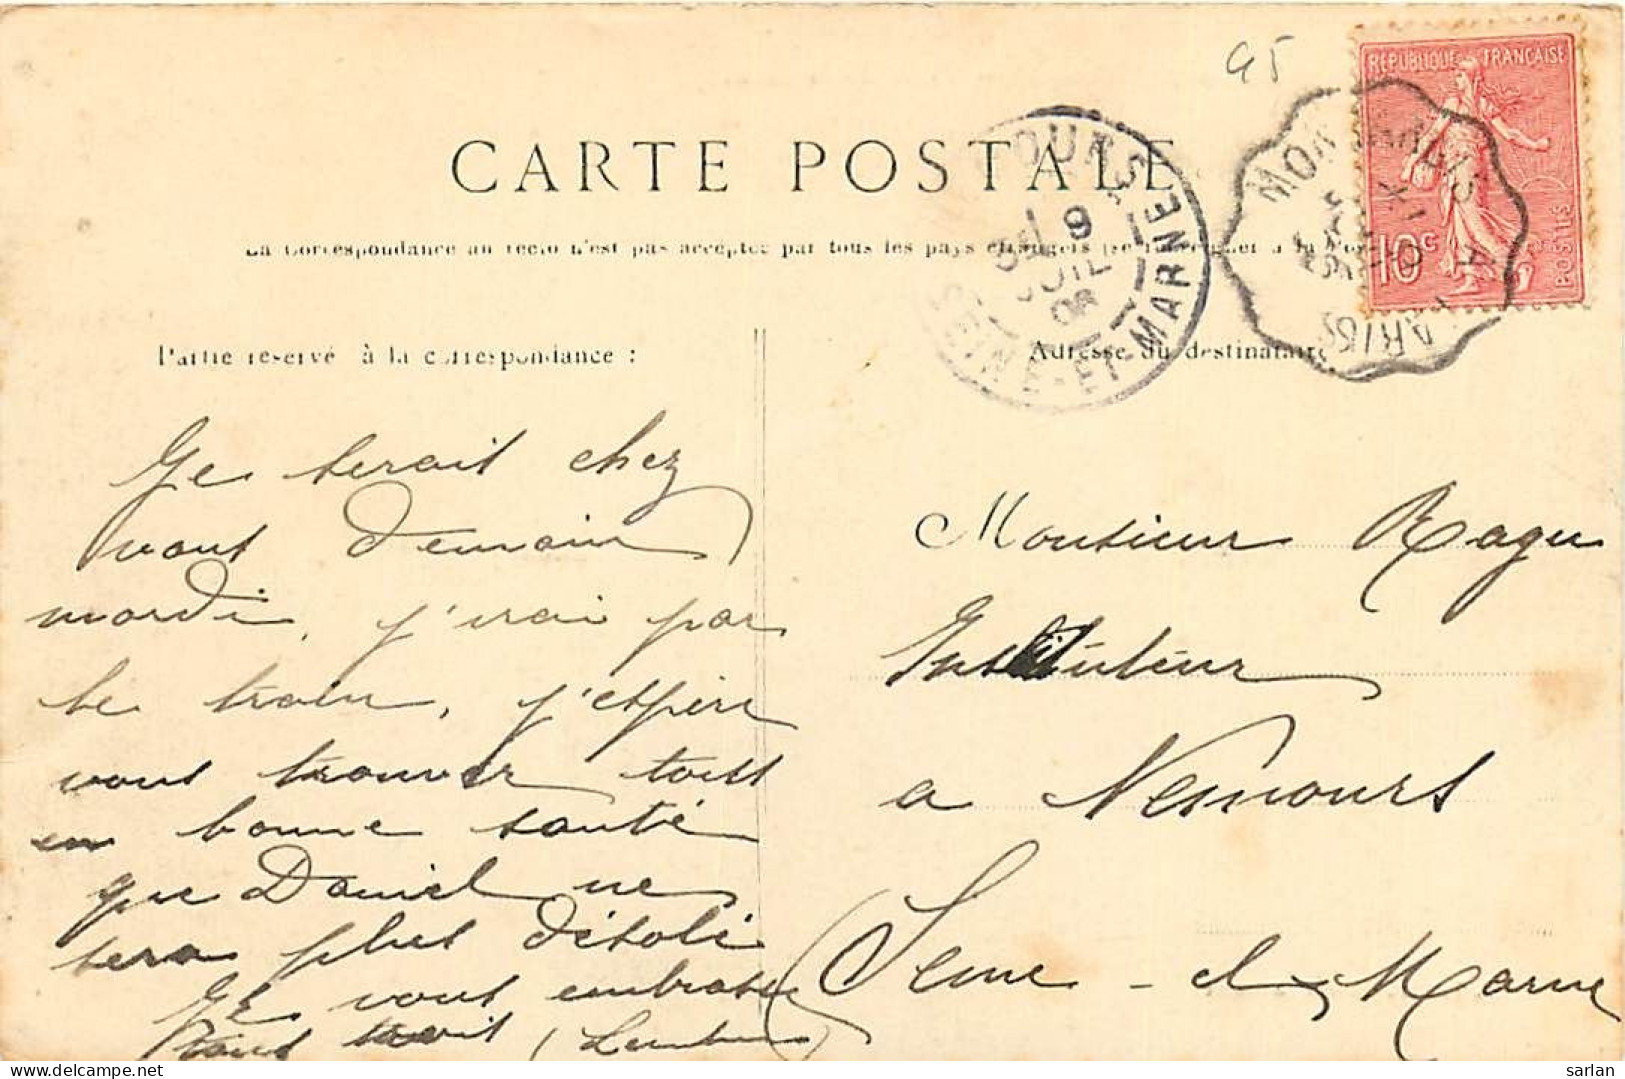 95
REPUBLIQUE FRANÇAISE
10c
POSTES
CARTE POSTALE
La Correspondance au recto n'est pas acceptée par tous les pays étrangers
9
08
SEINE-ET-MARNE
MONTARGIS A PARIS
Partie réservé à la correspondance :
Adresse du destinataire
Je serait chez
vous demain
mardi, j'irai par
le train, j'espère
vous trouver tous
en bonne santé
que Daniel ne
sera plus désolé
Je vous embrasse
tous trois
Monsieur Ragu
Instituteur
a Nemours
Seine-et-Marne
delcampe.net
sarlan